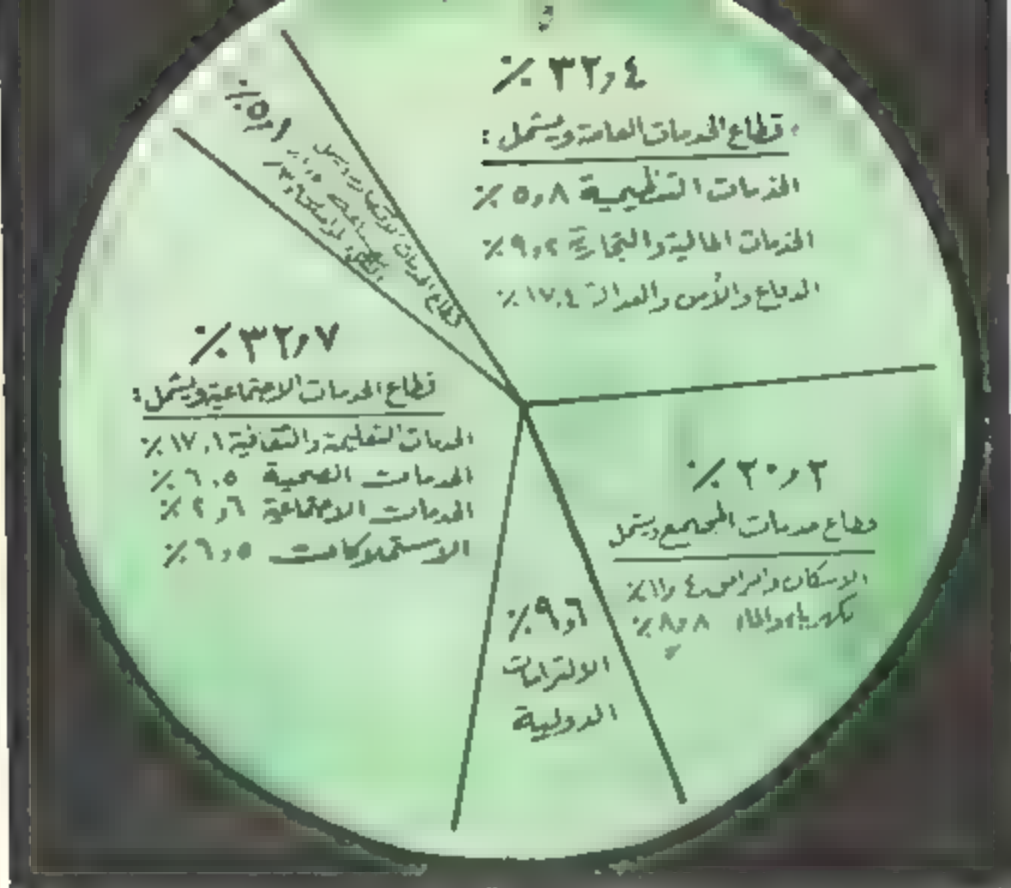 ٣٢,٤ ٪
قطاع الخدمات العامة ويشمل :
الخدمات التنظيمية ٥,٨ ٪
الخدمات المالية والتجارية ٩,٢ ٪
الدفاع والأمن والعدالة ١٧,٤ ٪
٥,١ ٪
قطاع الخدمات الاقتصادية ويشمل
٣,٦ ٪
٣٢,٧ ٪
قطاع الخدمات الاجتماعية ويشمل :
الخدمات التعليمية والثقافية ١٧,١ ٪
الخدمات الصحية ٦,٥ ٪
الخدمات الاجتماعية ٢,٦ ٪
الاستملاكات ٦,٥ ٪
٢٠,٢ ٪
قطاع خدمات المجتمع ويشمل
الاسكان والمرافق ١١,٤ ٪
الكهرباء والماء ٨,٨ ٪
٩,٦ ٪
الالتزامات
الدولية